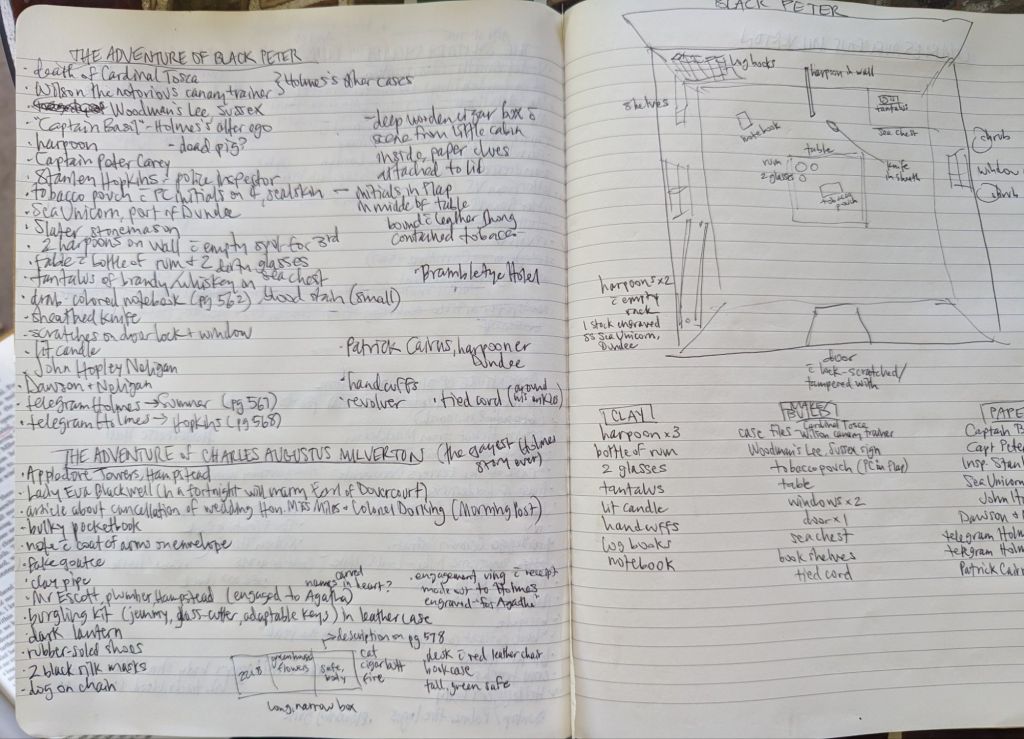 THE ADVENTURE OF BLACK PETER
· death of Cardinal Tosca
· Wilson the notorious canary trainer } Holmes's other cases
· Woodman's Lee, Sussex
· "Captain Basil" - Holmes's alter ego
· harpoon - dead pig?
- Captain Peter Carey
· Stanley Hopkins - police inspector
· tobacco pouch c̄ PC initials on it, sealskin — initials in flap
in middle of table
bound c̄ leather thong
contained tobacco
· Sea Unicorn, port of Dundee
· Slater stonemason
· 2 harpoons on wall c̄ empty spot for 3rd
· table c̄ bottle of rum + 2 dirty glasses
· tantalus of brandy/whiskey on sea chest
· drab-colored notebook (pg 562) blood stain (small)
· sheathed knife
- scratches on door lock + window
· lit candle
· John Hopley Neligan
· Dawson + Neligan
· telegram Holmes → Sumner (pg 567)
· telegram Holmes → Hopkins (pg 568)
- deep wooden cigar box c̄
scene from little cabin
inside, paper clues
attached to lid
· Brambletye Hotel
· Patrick Cairns, harpooner
Dundee
· handcuffs
· revolver · tied cord (around his ankles)
THE ADVENTURE of CHARLES AUGUSTUS MILVERTON (the gayest Holmes
story ever)
· Appledore Towers, Hampstead
· Lady Eva Blackwell (in a fortnight will marry Earl of Dovercourt)
· article about cancellation of wedding Hon. Miss Miles + Colonel Dorking (Morning Post)
- bulky pocketbook
· note c̄ coat of arms on envelope
· fake goatee
· clay pipe
· Mr Escott, plumber, Hampstead (engaged to Agatha)
carved
names in heart?
· engagement ring c̄ receipt
made out to Holmes
engraved "for Agatha"
· burgling kit (jemmy, glass-cutter, adaptable keys) in leather case
· dark lantern
· rubber-soled shoes
· 2 black silk masks
- dog on chain
→ description on pg 578
221B
greenhouse
flowers
safe,
body
cat
cigar butt
fire
desk c̄ red leather chair
bookcase
tall, green safe
long, narrow box
BLACK PETER
log books
harpoon in wall
shelves
tantalus
sea chest
notebook
table
rum
2 glasses
tobacco
pouch
knife
in sheath
shrub
window
shrub
harpoons x2
c̄ empty
rack
1 stock engraved
SS Sea Unicorn,
Dundee
door
c̄ lock-scratched/
tampered with
CLAY
harpoon x 3
bottle of rum
2 glasses
tantalus
lit candle
handcuffs
log books
notebook
MAKE/
BUILD
case files - Cardinal Tosca
Wilson canary trainer
Woodman's Lee, Sussex sign
tobacco pouch (PC in flap)
table
windows x 2
door x 1
sea chest
book shelves
tied cord
PAPE
Captain B
Capt Pete
Insp. Stan
Sea Unicorn
John H
Dawson +
telegram Holm
telegram Holm
Patrick Cair